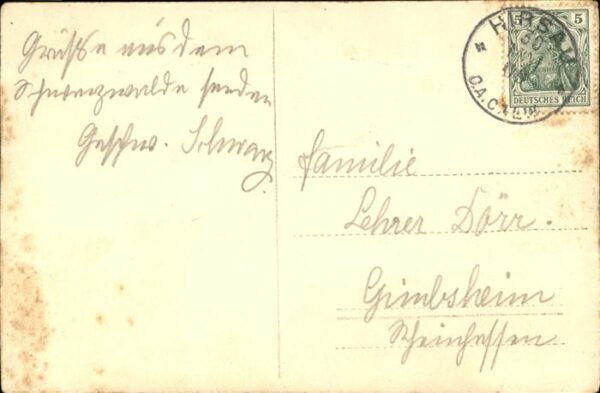 Grüße aus dem
Schwarzwalde senden
Geschw. Schwarz
HIRSAU
O.A. CALW.
5 5
DEUTSCHES REICH
Familie
Lehrer Dörr.
Gimbsheim
Rheinhessen